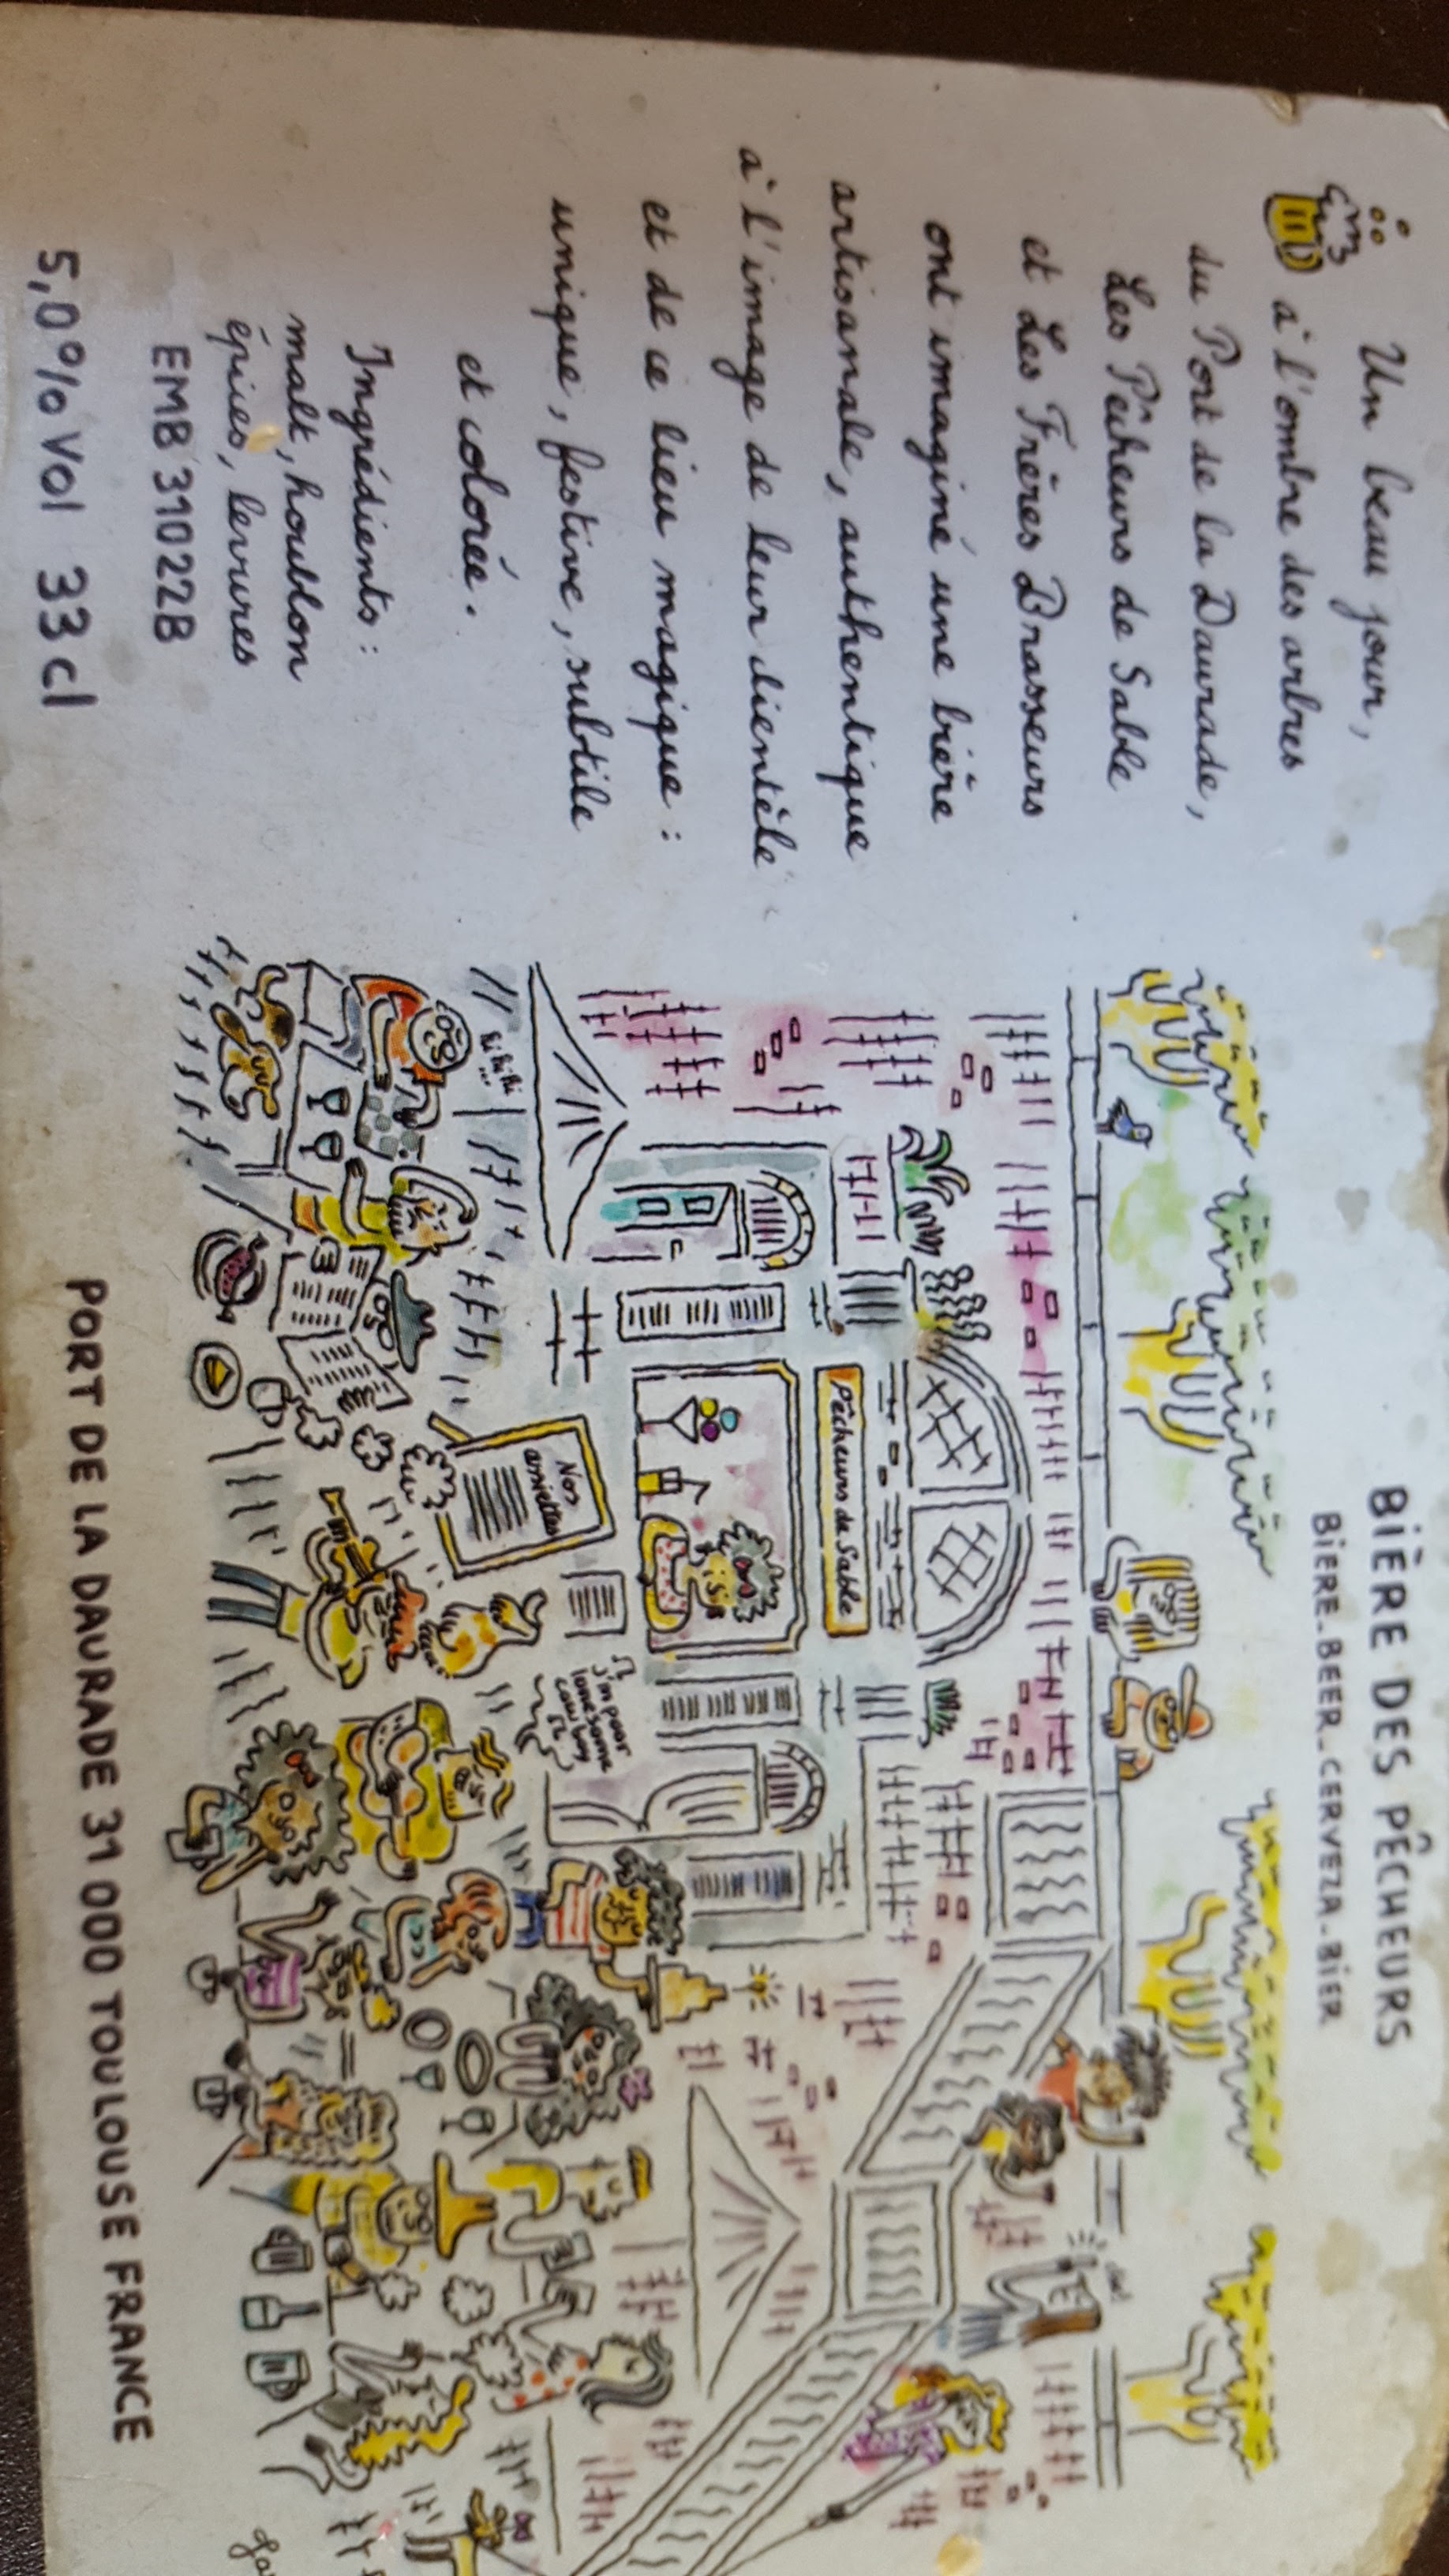 Un beau jour,
à l'ombre des arbres
du Port de la Daurade,
Les Pêcheurs de Sable
et Les Frères Brasseurs
ont imaginé une bière
artisanale, authentique
à l'image de leur clientèle
et de ce lieu magique :
unique, festive, subtile
et colorée.
Ingrédients :
malt, houblon
épices, levures
EMB 31022B
5,0% Vol 33 cl
BIÈRE DES PÊCHEURS
BIÈRE_BEER_CERVEZA_BIER
Pêcheurs de Sable
Nos
assiettes
hi hi hi
...
I'm poor
lonesome
cow boy
PORT DE LA DAURADE 31 000 TOULOUSE FRANCE